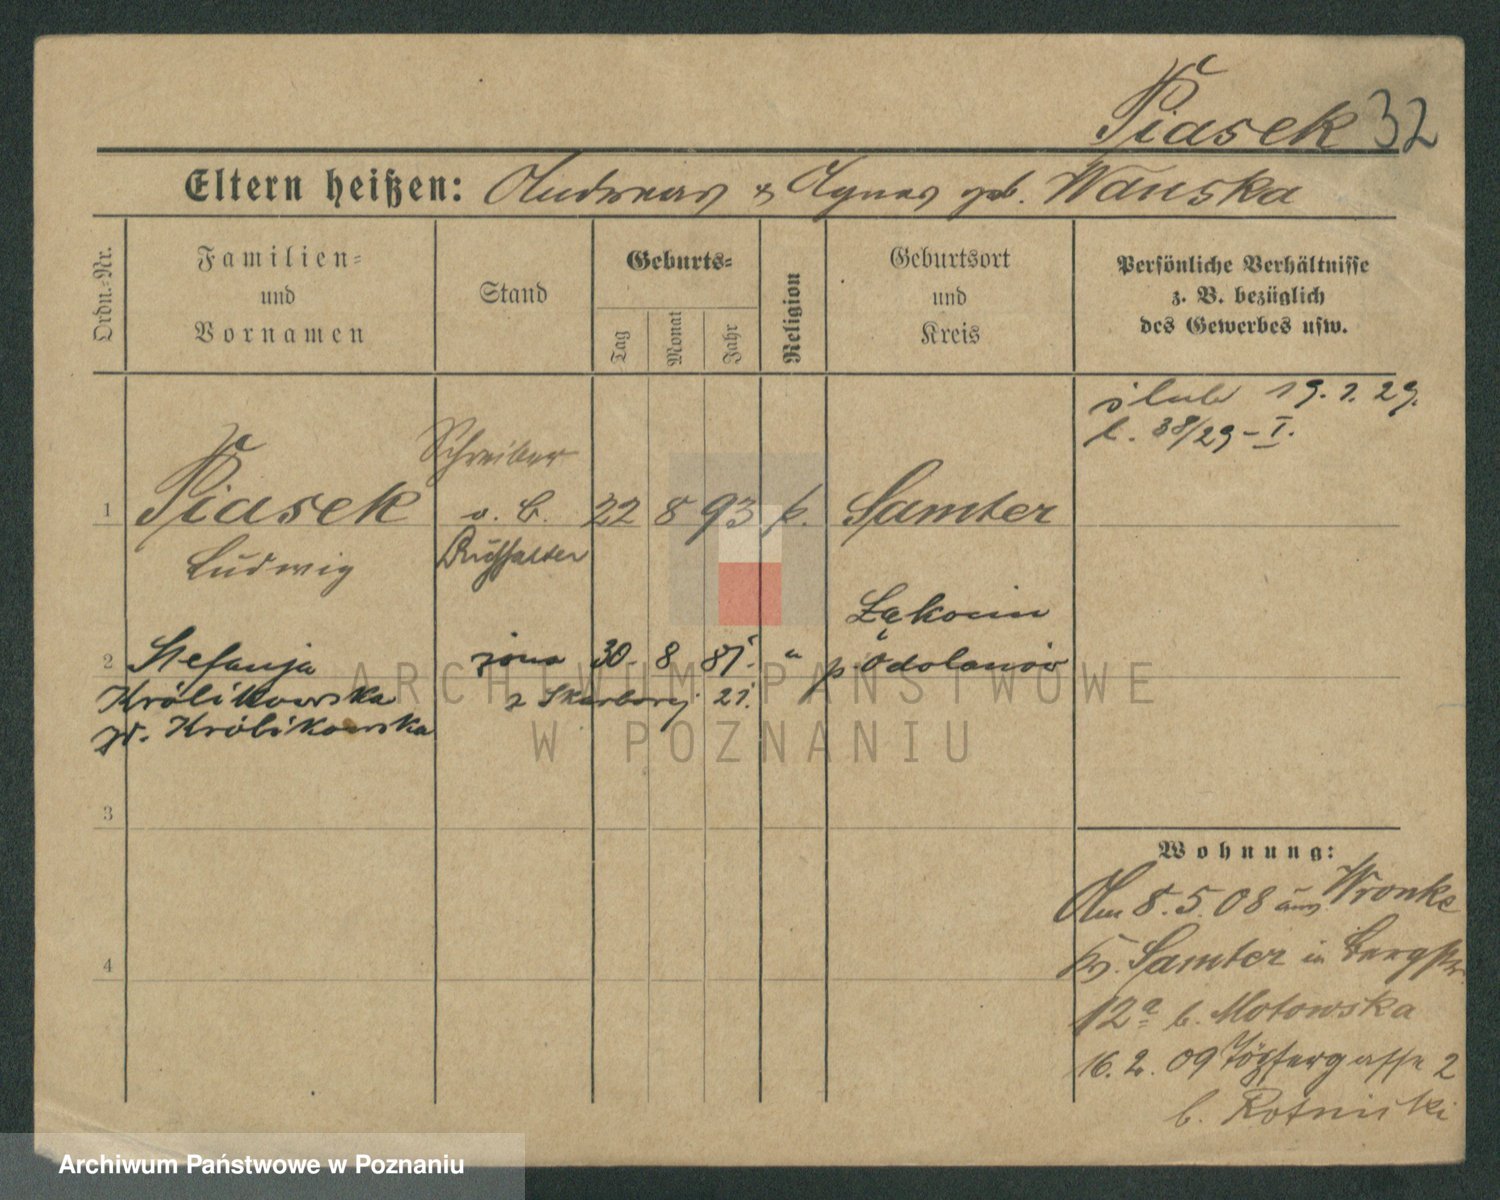 Piasek 32
Eltern heißen: Andreas & Agnes geb. Wanska
Ordn.-Nr.
Familien-
und
Vornamen
Stand
Geburts-
Tag
Monat
Jahr
Religion
Geburtsort
und
Kreis
Persönliche Verhältnisse
z. B. bezüglich
des Gewerbes usw.
ślub 19.7.29.
l. 38/29-I.
Schreiber
1 Piasek v. B. 22 8 93 k. Samter
Ludwig Buchhalter
2 Stefanja żona 30 8 85. " p. Odolanów
Królikowska z Skarbony 21.
zd. Królikowska
3
4
Wohnung:
Am 8.5.08 aus Wronke
Kr. Samter in Bergstr.
12a b. Motowska
16.2.09 Töpfergasse 2
b. Rotnicki
ARCHIWUM PAŃSTWOWE
W POZNANIU
Archiwum Państwowe w Poznaniu